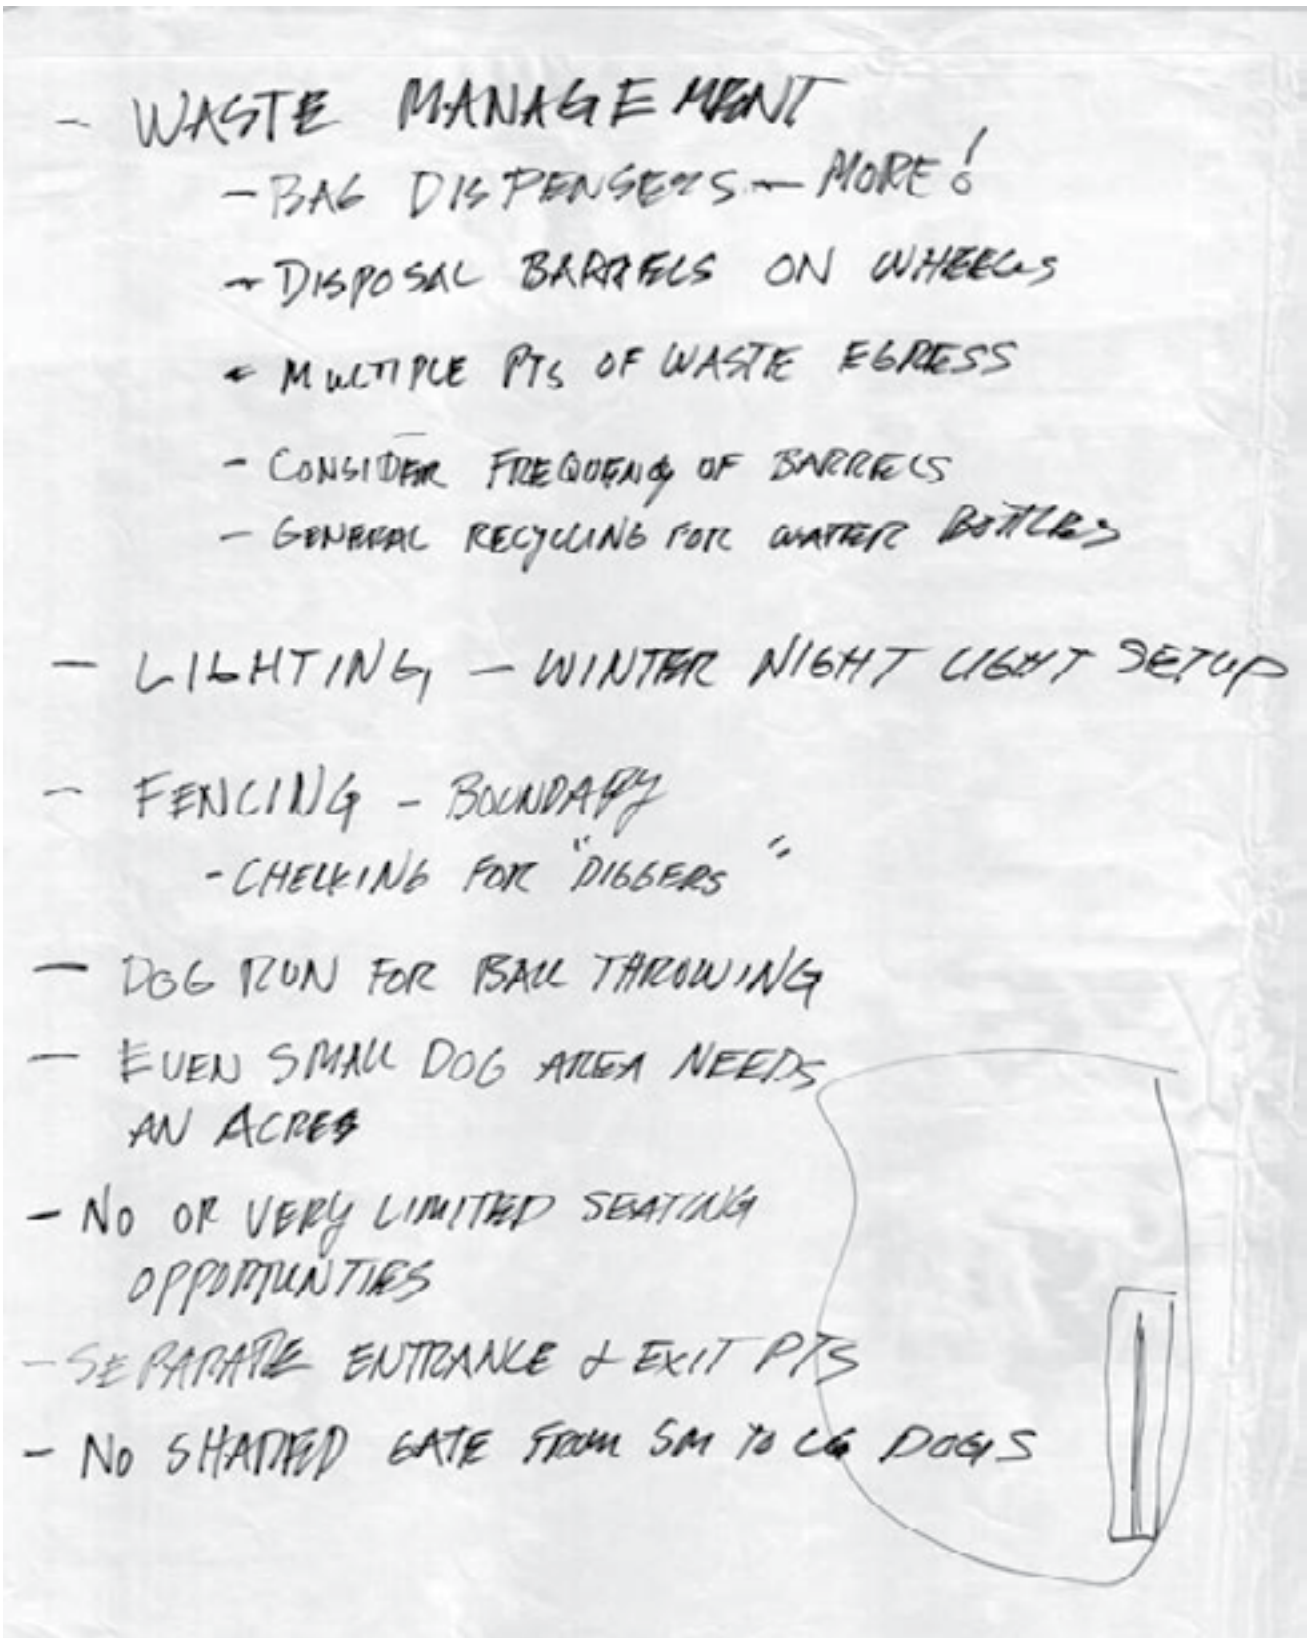 - WASTE MANAGEMENT
- BAG DISPENSERS - MORE!
- DISPOSAL BARRELS ON WHEELS
- MULTIPLE PTS OF WASTE EGRESS
- CONSIDER FREQUENCY OF BARRELS
- GENERAL RECYCLING FOR WATER BOTTLES
- LIGHTING, - WINTER NIGHT LIGHT SETUP
- FENCING - BOUNDARY
- CHECKING FOR "DIGGERS"
- DOG RUN FOR BALL THROWING
- EVEN SMALL DOG AREA NEEDS
AN ACRES
- NO OR VERY LIMITED SEATING
OPPORTUNTIES
- SEPARATE ENTRANCE & EXIT PTS
- NO SHARED GATE FROM SM TO LG DOGS